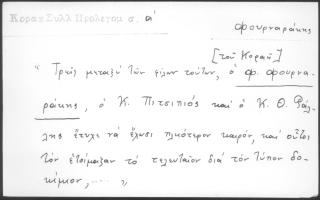 Κοραῆ Συλλ Προλεγομ σ. α'
φουρναράκης
[τοῦ Κοραῆ]
" Τρεῖς μεταξὺ τῶν φίλων τούτων, ὁ Φ. Φουρνα-
ράκης, ὁ Κ. Πιτσιπιός καὶ ὁ Κ. Θ. Ράλ-
λης ἔτυχε νὰ ἔχωσι πλειότερον καιρόν, καὶ οὗτοι
τὸν ἑτοίμαξαν τὸ τελευταῖον διὰ τὸν τύπον δο-
κίμιον, ..... "